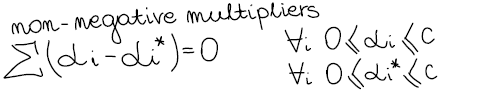 non-negative multipliers
∑(αi-αi*)=0
∀i 0⩽αi⩽C
∀i 0⩽αi*⩽C